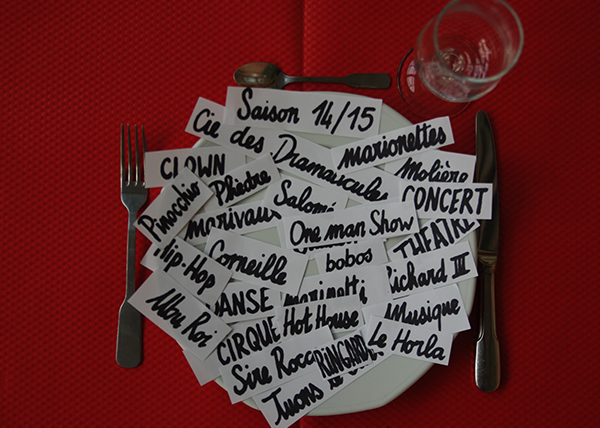 Saison 14/15
Cie des Dramauscules
marionettes
CLOWN
Phèdre
Molière
Salomé
CONCERT
Pinocchio
marivaux
One man Show
THEATRE
Hip-Hop
Corneille
bobos
Richard III
DANSE
marinetti
Musique
Ubu Roi
CIRQUE
Hot House
Le Horla
Sire
RINGARD
Tuons